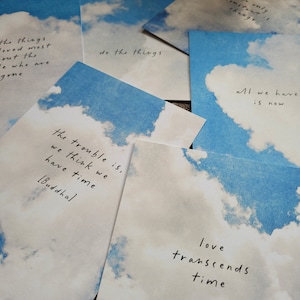 the things
loved most
about the
who are
gone
do the things
all we have
is now
the trouble is,
we think we
have time
(Buddha)
love
transcends
time